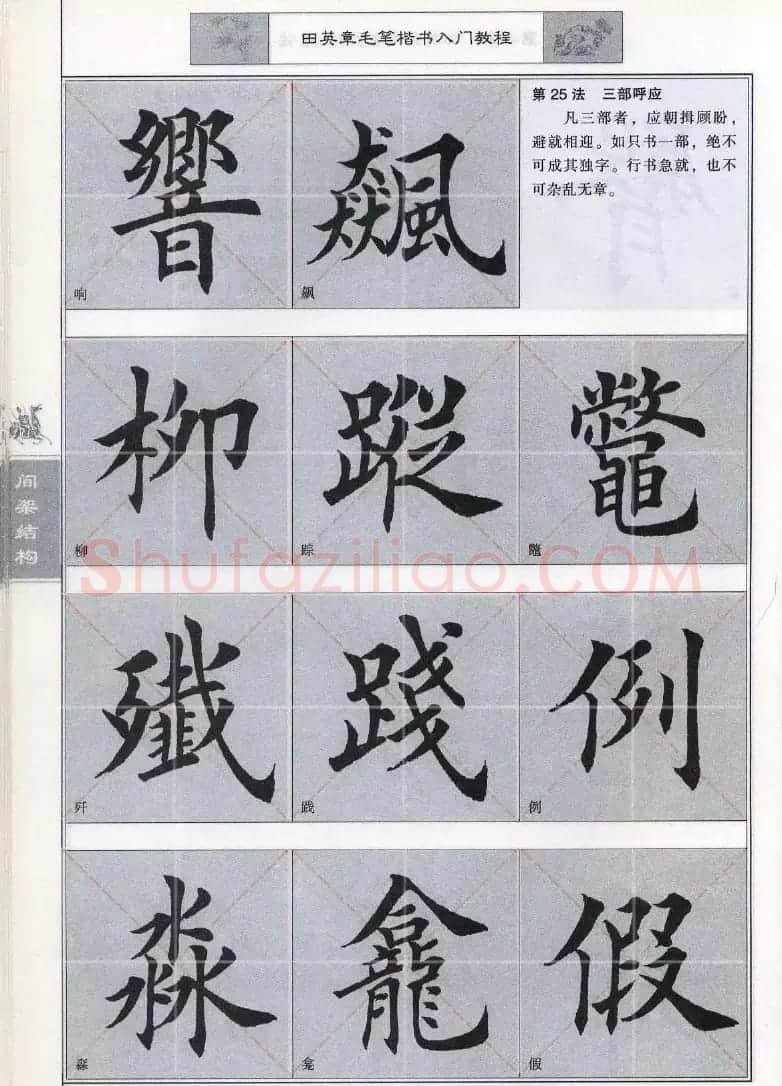 田英章毛笔楷书入门教程
第25法 三部呼应
凡三部者，应朝揖顾盼，
避就相迎。如只书一部，绝不
可成其独字。行书急就，也不
可杂乱无章。
響 飆
响 飙
柳 蹤 鼈
柳 踪 鼈
间架结构
Shufaziliao.COM
殲 踐 例
歼 践 例
淼 龕 假
淼 龛 假